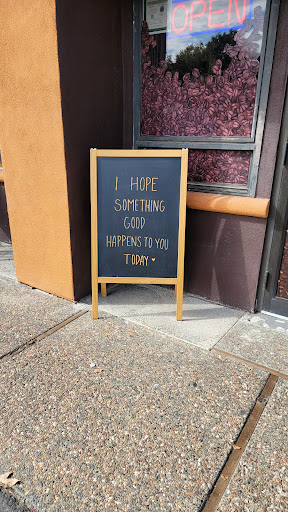 OPEN
I HOPE
SOMETHING
GOOD
HAPPENS TO YOU
TODAY